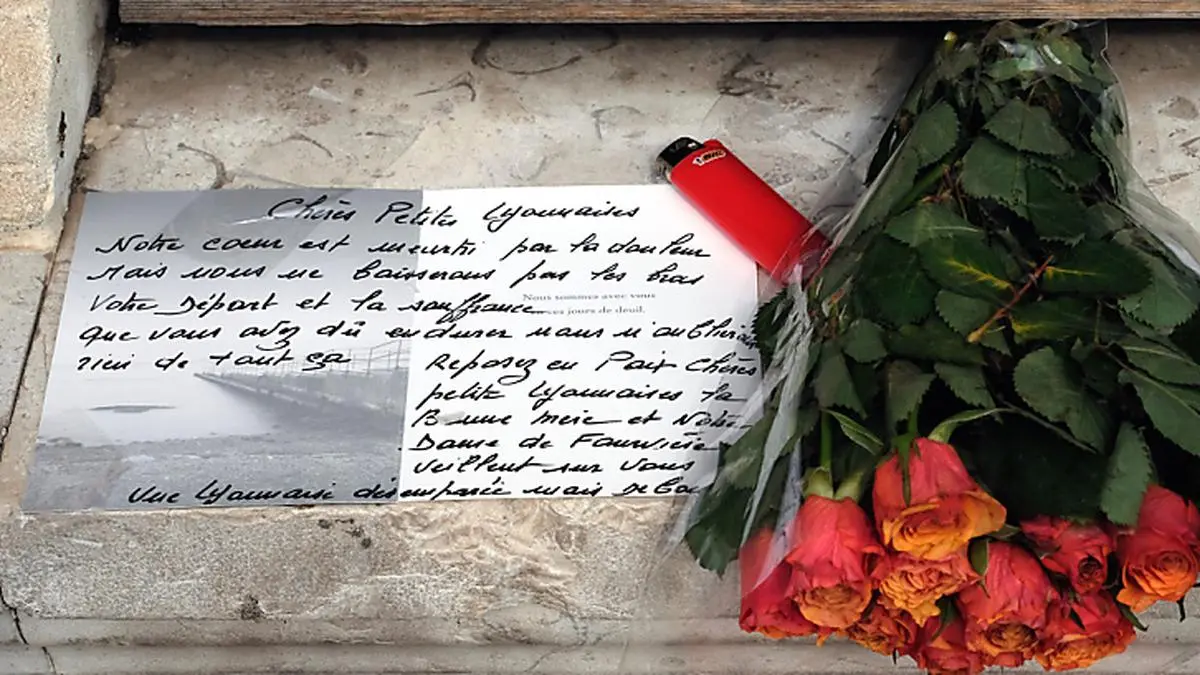 Chères Petites Lyonnaises
Notre coeur est meurtri par la douleur
Mais nous ne baisserons pas les bras
Votre Départ et la souffrance
Nous sommes avec vous
ces jours de deuil.
que vous avez dû endurer nous n'oublierons
rien de tout ça
Reposez en Paix Chères
petites Lyonnaises la
Bonne mère et Notre
Dame de Fourvière
veillent sur vous
Une Lyonnaise désemparée mais Debou
BIC